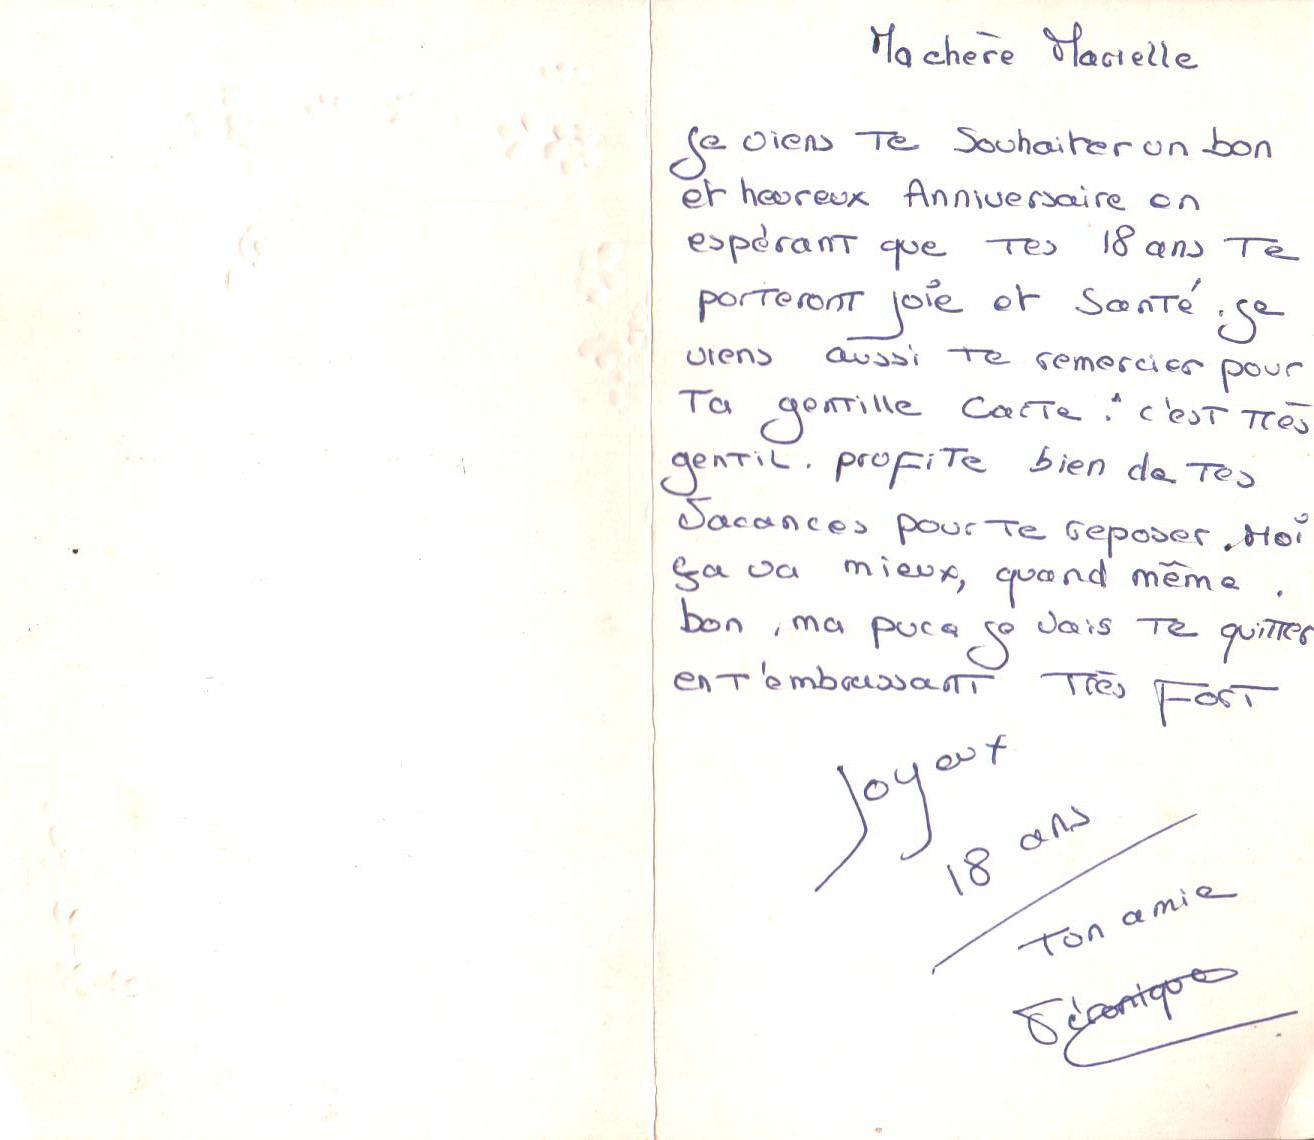 Ma chère Marielle
Je viens Te Souhaiter un bon
et heureux Anniversaire en
espérant que Tes 18 ans Te
porteront joie et Santé. Je
viens aussi te remercier pour
Ta gentille Carte : c'est Très
gentil. profite bien de Tes
Vacances pour Te reposer. Moi
ça va mieux, quand même.
bon, ma puce je Vais Te quitter
en T'embrassant Très Fort
Joyeux
18 ans
Ton amie
Véronique